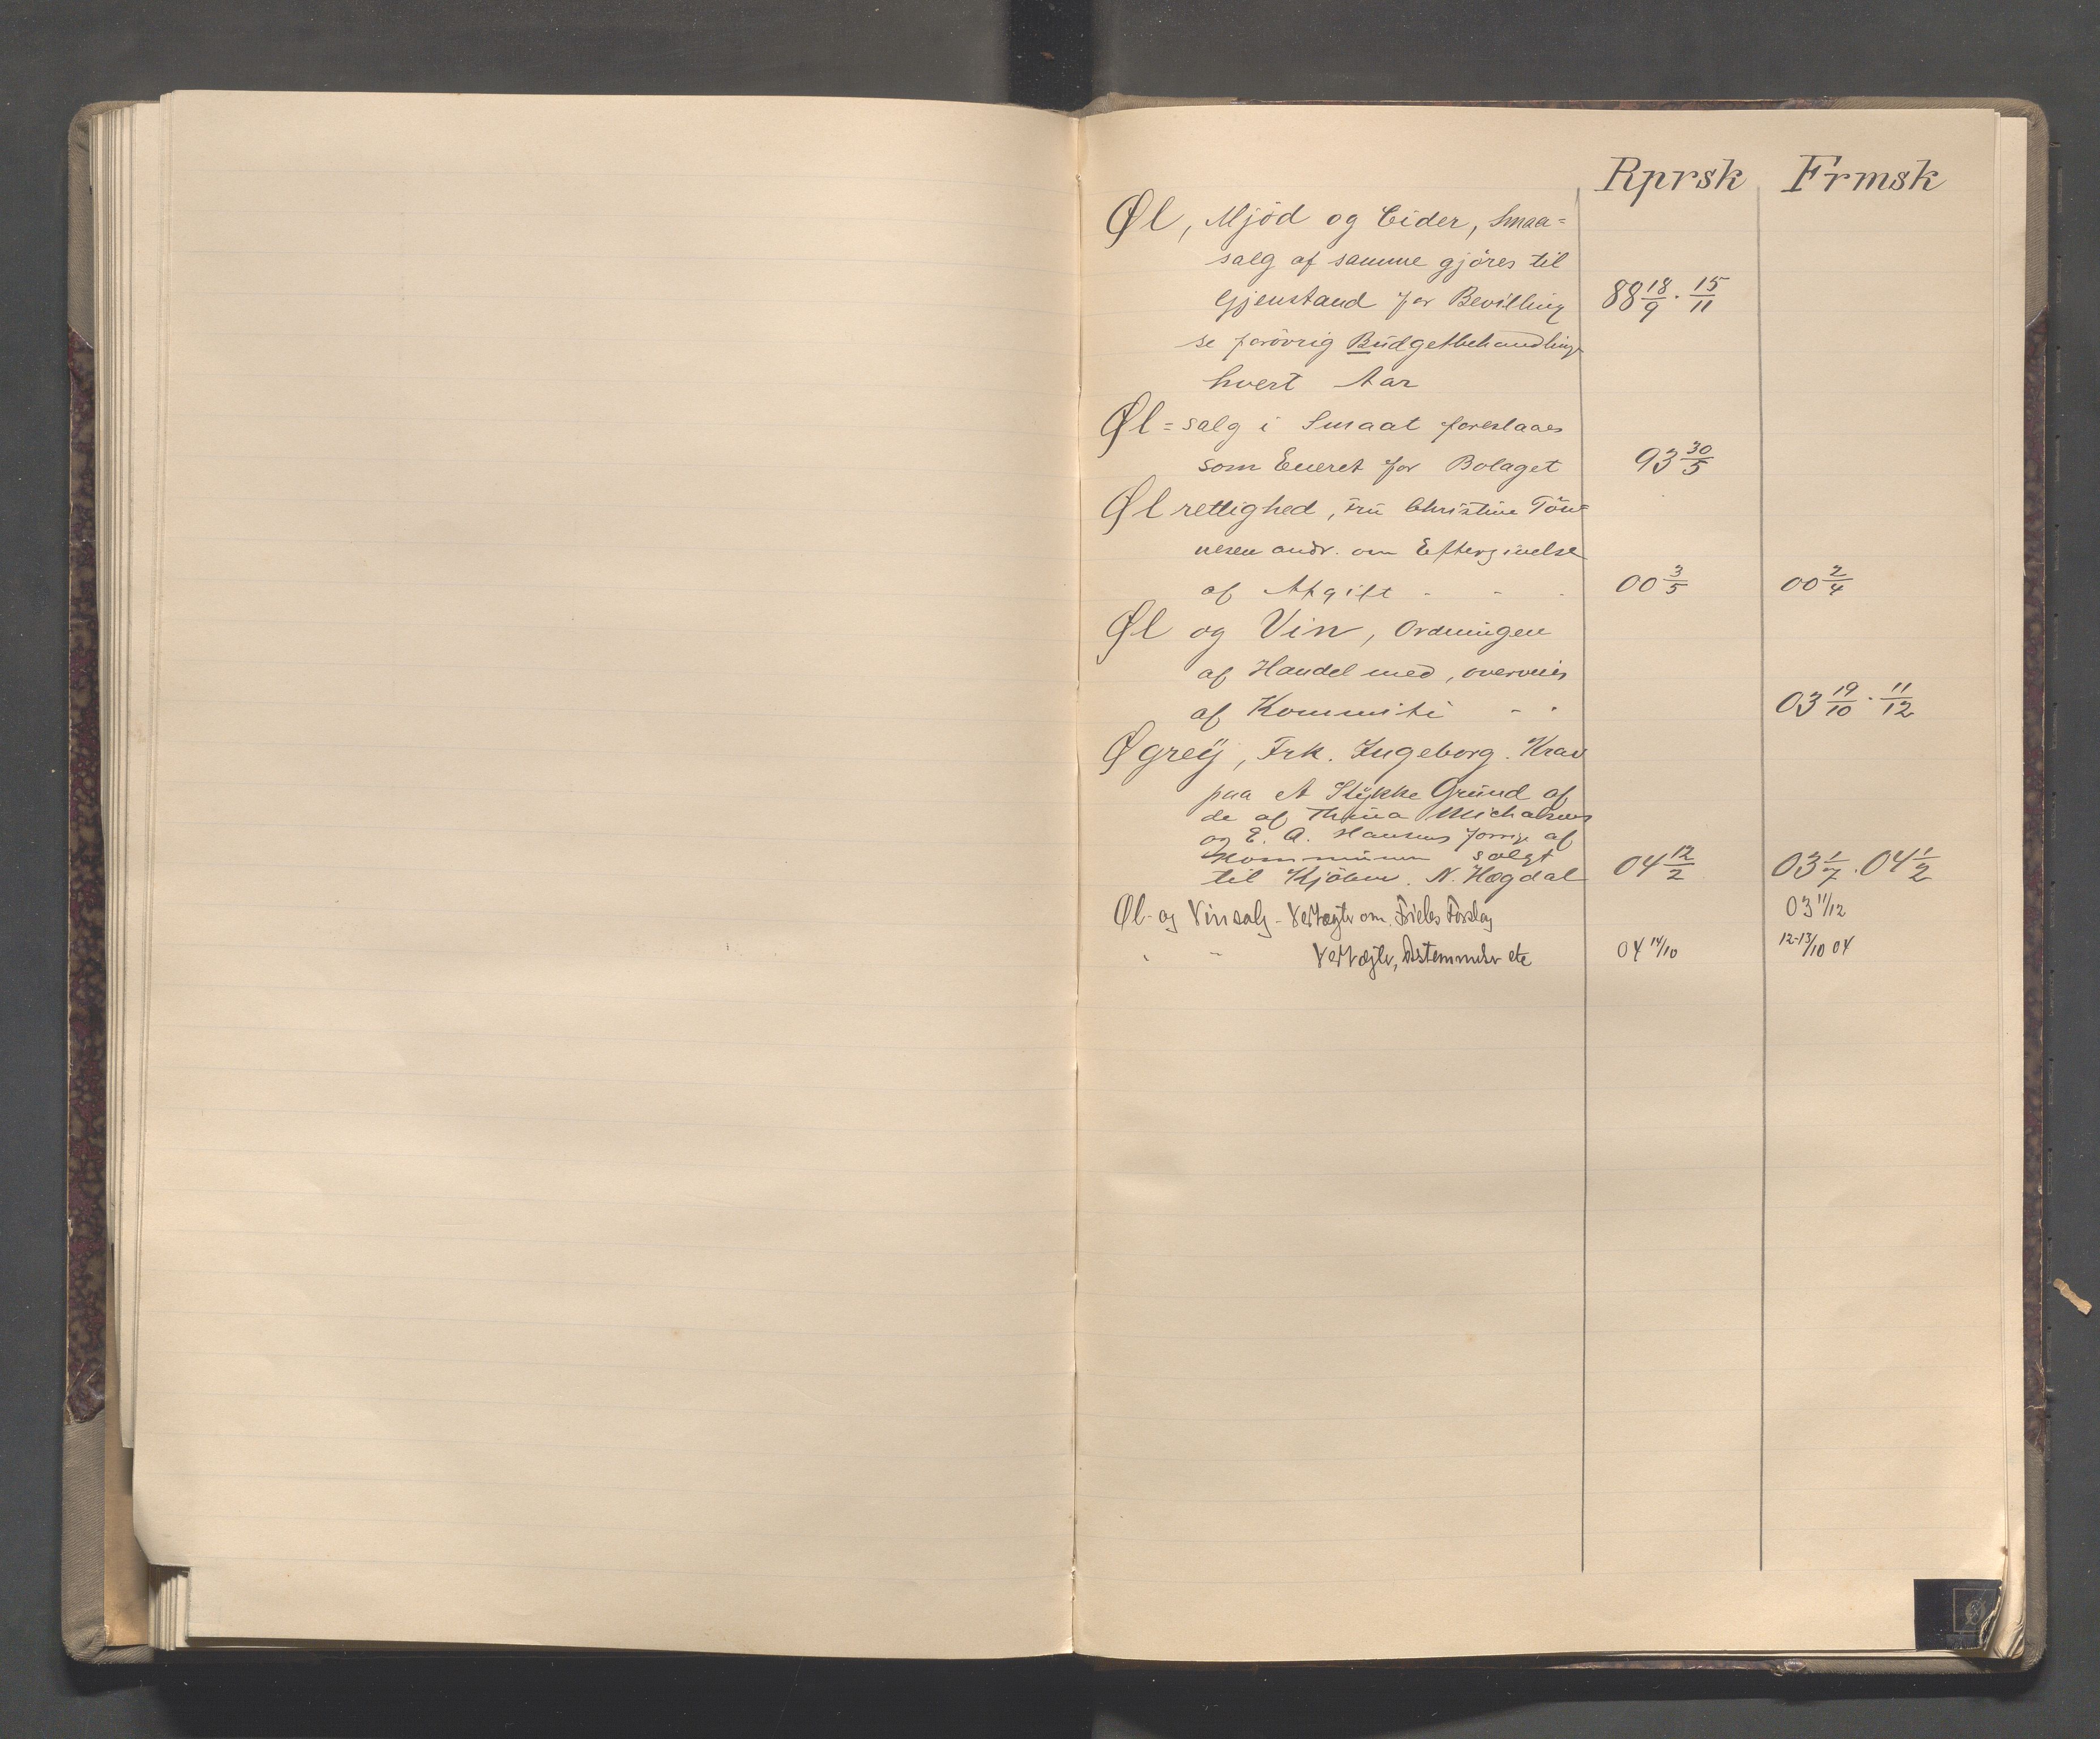 Rprsk Frmsk
Øl, Mjød og Cider, Smaa=
salg af samme gjøres til
Gjenstand for Bevilling 88 18/9 . 15/11
se forøvrig Budgetbehandling
hvert Aar
Øl=salg i Smaat foreslaaes
som Eneret for Bolaget 93 30/5
Ølrettighed, Fru Christine Tön=
nesen andr. om Eftergivelse
af Afgift - - - 00 3/5 00 2/4
Øl og Vin, Ordningen
af Handel med, overveies
af Kommité - - 03 19/10 . 11/12
Øgreÿ, Frk. Ingeborg. Krav
paa et Stykke Grund af
de af Thina Michalsens
og E. A. Hansens forrige af
Kommunen solgt
til Kjøbm. N. Høgdal 04 12/2 03 1/7 . 04 1/2
Øl- og Vinsalg - Vedtægter om Forslag 03 11/12
" " Vedtægter, Bestemmelser etc 04 14/10 12-13/10 04